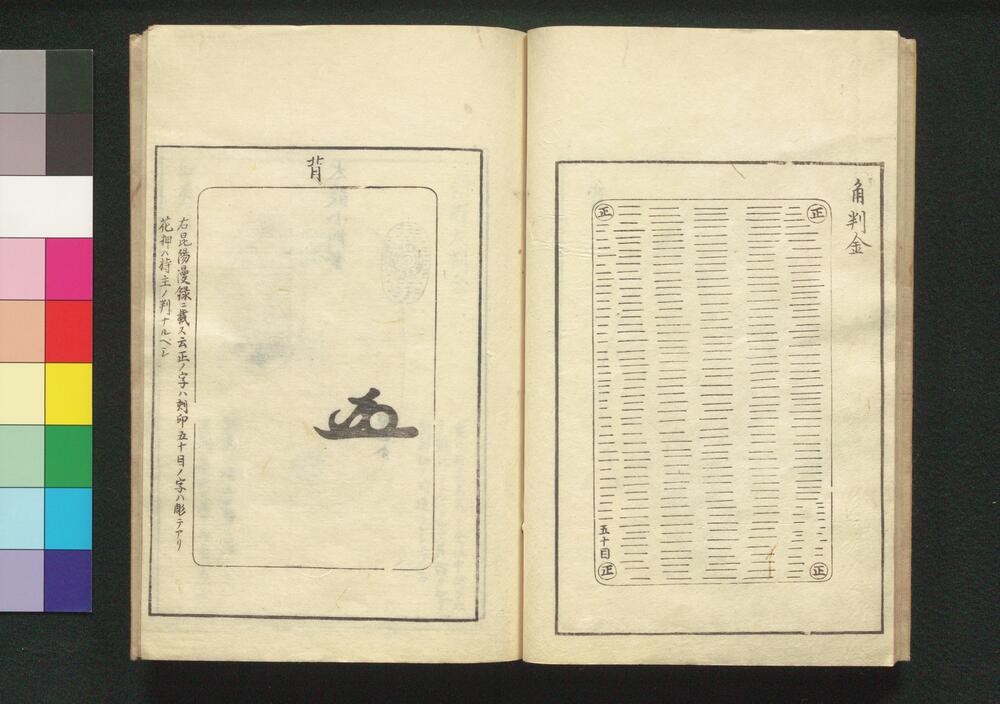 角判金
正
正
五十目
正
正
背
右昆陽漫録ニ載ス云正ノ字ハ刻印五十目ノ字ハ彫テアリ
花押ハ持主ノ判ナルベシ